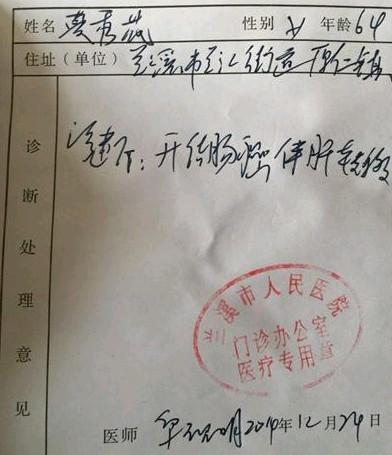 姓名 龚秀薇 性别 女 年龄 64
住址(单位) 兰溪市兰江街道
诊断处理意见
诊断: 升结肠癌伴肝转移
兰溪市人民医院
门诊办公室
医疗专用章
医师 2014年12月24日